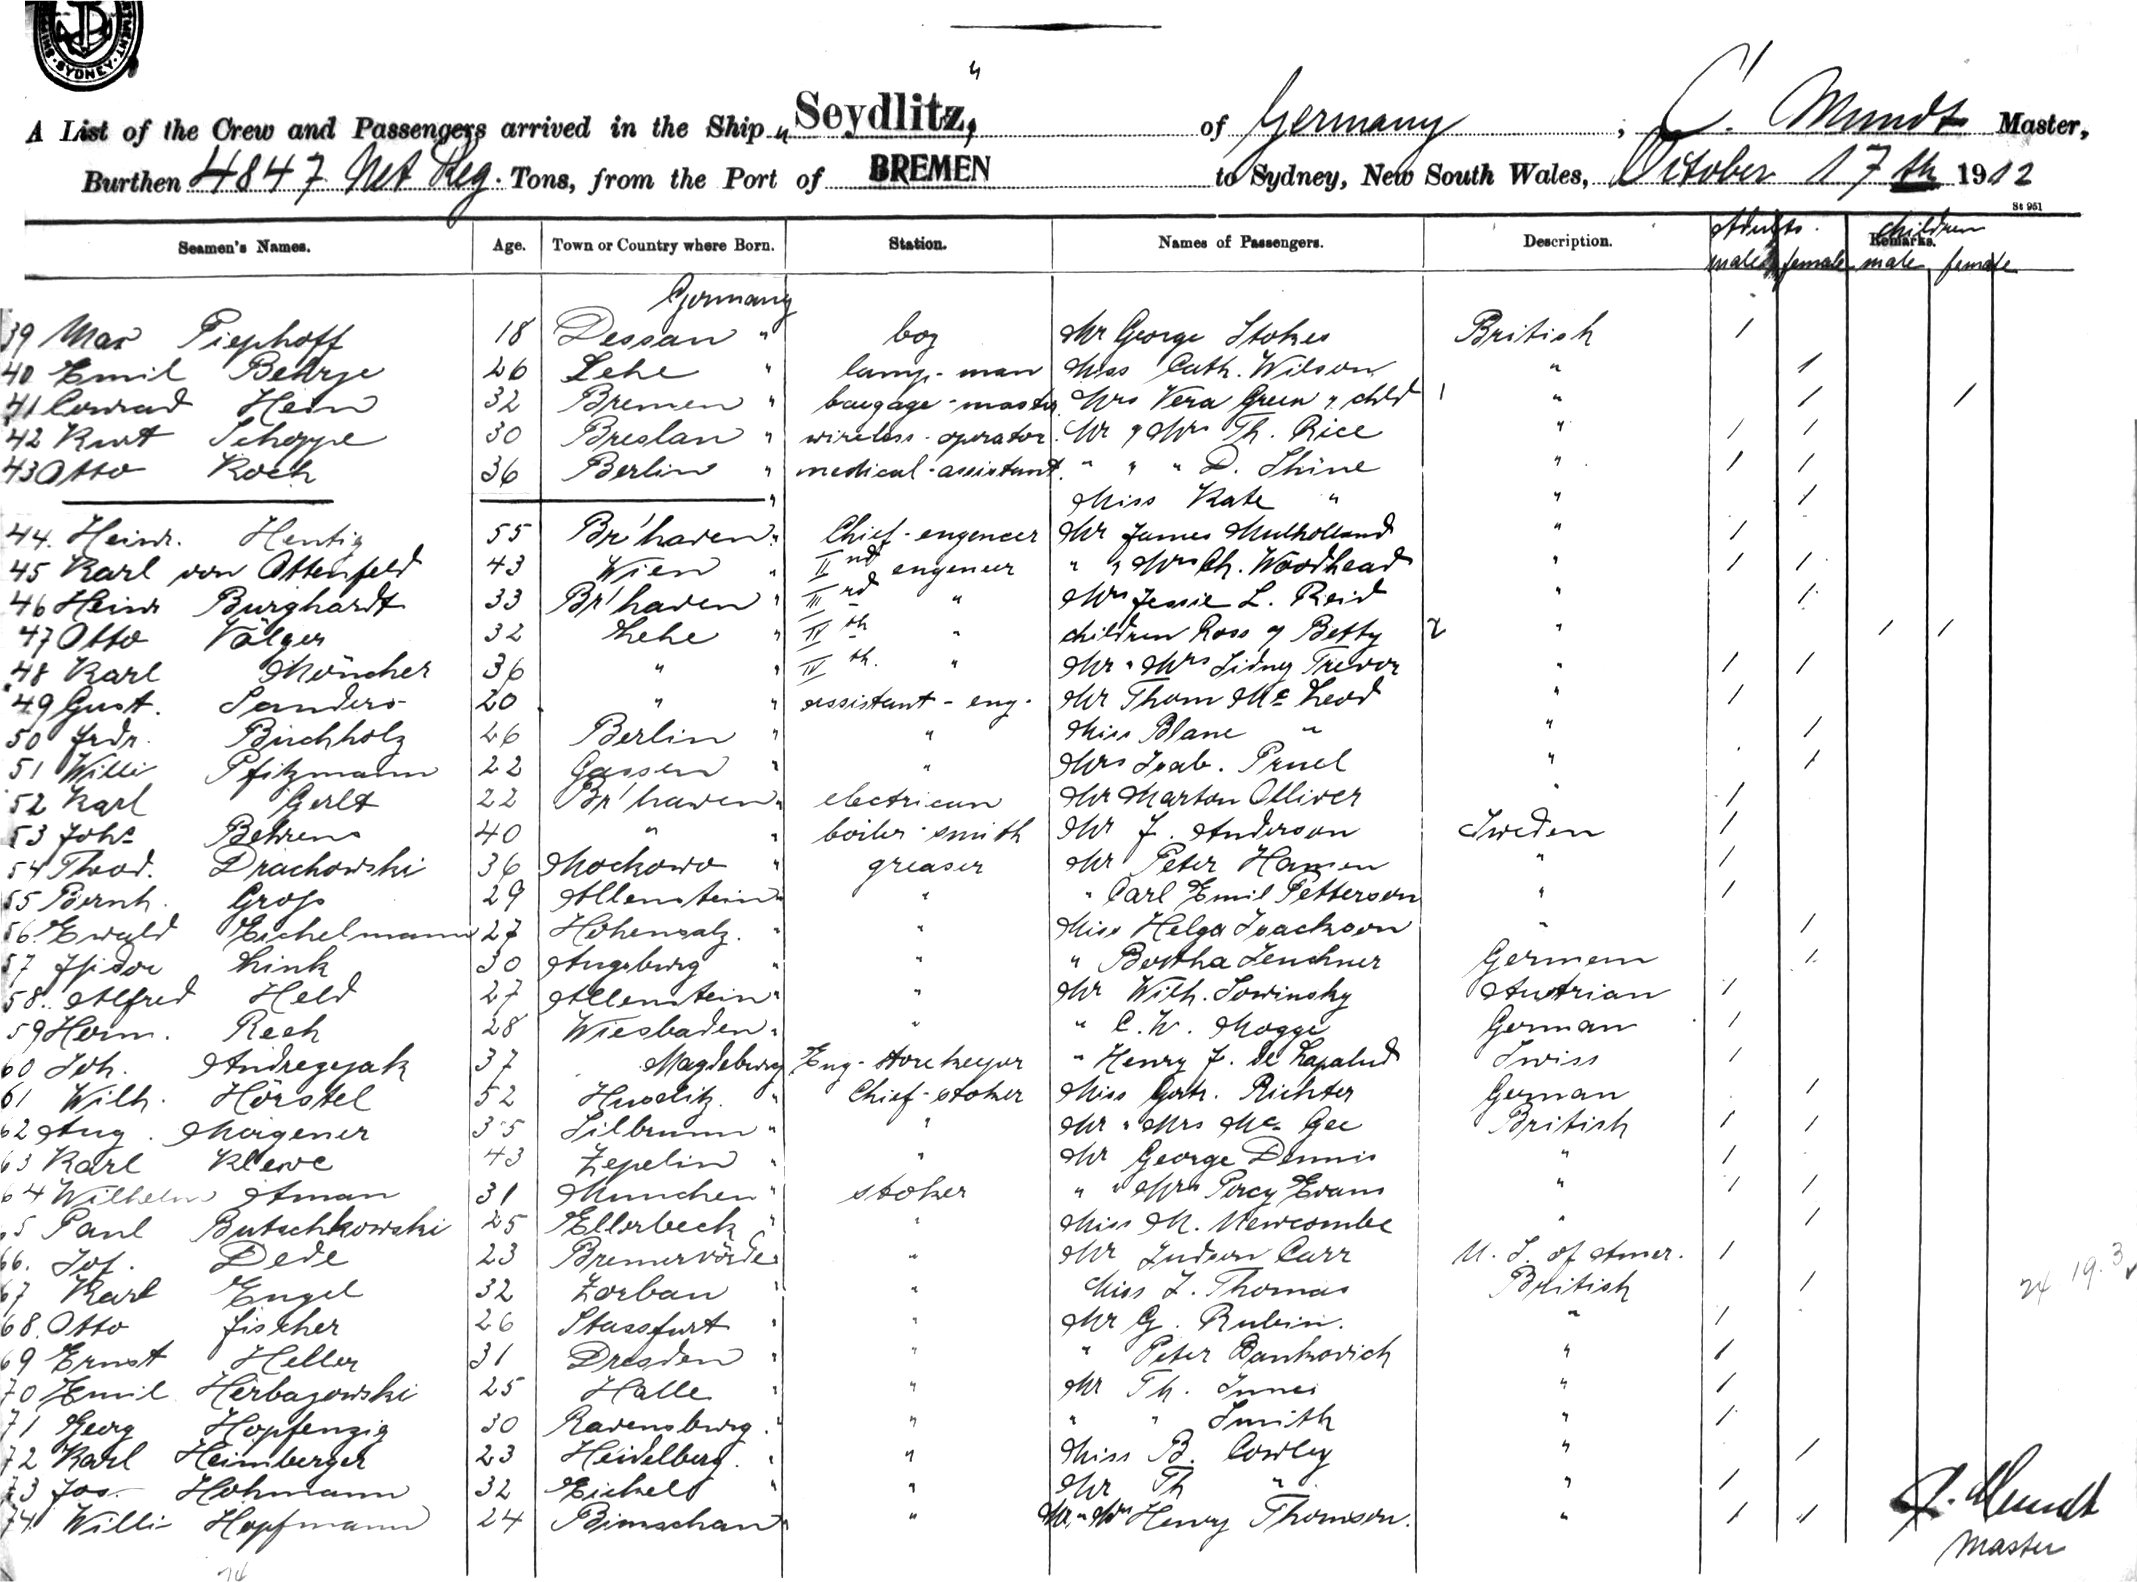 SYDNEY
A List of the Crew and Passengers arrived in the Ship "Seydlitz," of Germany, C. Mundt Master,
Burthen 4847 Net Reg. Tons, from the Port of BREMEN to Sydney, New South Wales, October 17th 1912
St 951
Seamen's Names. Age. Town or Country where Born. Station. Names of Passengers. Description. Adults. Remarks. children
males female male female
Germany
39 Max Piephoff 18 Dessau " boy Mr George Stokes British 1
40 Emil Behrje 26 Lehe " lamp-man Miss Cath. Wilson " 1
41 Conrad Hein 32 Bremen " baggage-master Mrs Vera Green & child 1 " 1 1
42 Kurt Schoppe 30 Breslau " wireless-operator Mr & Mrs Th. Rice " 1 1
43 Otto Koch 36 Berlin " medical-assistant " " " D. Shine " 1 1
" Miss Kate " " 1
44. Heinr. Hentig 55 Br'haven " Chief-engeneer Mr James Mulholland " 1
45 Karl von Ottenfeld 43 Wien " IInd engeneer " " Mrs Ch. Woodhead " 1 1
46 Heinr Burghardt 33 Br'haven " IIIrd " Mrs Jessie L. Reid " 1
47 Otto Völger 32 Lehe " IVth " children Ross & Betty 2 " 1 1
48 Karl Möncher 36 " " IVth. " Mr & Mrs Sidney Trevor " 1 1
49 Gust. Sanders 20 " " assistant-eng. Mr Thom Mc Leod " 1
50 Frdr. Buchholz 26 Berlin " " Miss Blanc " " 1
51 Willi Pfitzmann 22 Gassen " " Mrs Isab. Pruel " 1
52 Karl Gerlt 22 Br'haven " electrican Mr Marton Olliver " 1
53 Johs Behrens 40 " " boiler-smith Mr J. Anderson Sweden 1
54 Theod. Drachowski 36 Mockowo " greaser Mr Peter Hansen " 1
55 Bernh. Gross 29 Allenstein " " " Carl Emil Petterson " 1
56. Ewald Eichelmann 27 Hohensalz. " " Miss Helga Isackson " 1
57 Isidor Link 30 Augsburg " " " Bertha Lenchner German 1
58. Alfred Held 27 Allenstein " " Mr Wilh. Sowinsky Austrian 1
59 Herm. Rech 28 Wiesbaden " " " C. W. Mogge German 1
60 Joh. Andregejak 37 Magdeburg Eng-storekeeper " Henry F. de Lapalud Swiss 1
61 Wilh. Hörstel 52 Huselitz. " Chief-stoker Miss Gertr. Richter German 1
62 Aug. Morgener 35 Silbrunn " " Mr & Mrs Mc Gee British 1 1
63 Karl Klewe 43 Zepelin " " Mr George Dennis " 1
64 Wilhelm Aman 31 Munchen " stoker " " Mrs Percy Evans " 1 1
65 Paul Butschkowski 25 Ellerbeck " " Miss M. Newcombe " 1
66. Jos. Dede 23 Bremervörde " Mr Judson Carr U. S. of Amer. 1
67 Karl Engel 32 Zorbau " " Miss L. Thomas British 1
68. Otto Fischer 26 Stassfurt " " Mr G. Rubin. " 1
69 Ernst Heller 31 Dresden " " " Peter Bankovich " 1
70 Emil Herbazowski 25 Halle " " Mr Th. Innes " 1
71 Georg Hopfenzig 30 Ravensburg " " " " Smith " 1
72 Karl Heimberger 23 Heidelberg. " " Miss B. Cowley " 1
73 Jos. Hohmann 32 Eickel " " Mr Th " " 1
74 Willi Hopfmann 24 Bimschau " " Mr. & Mrs Henry Thomson. " 1 1
24 19.3
C. Mundt
Master